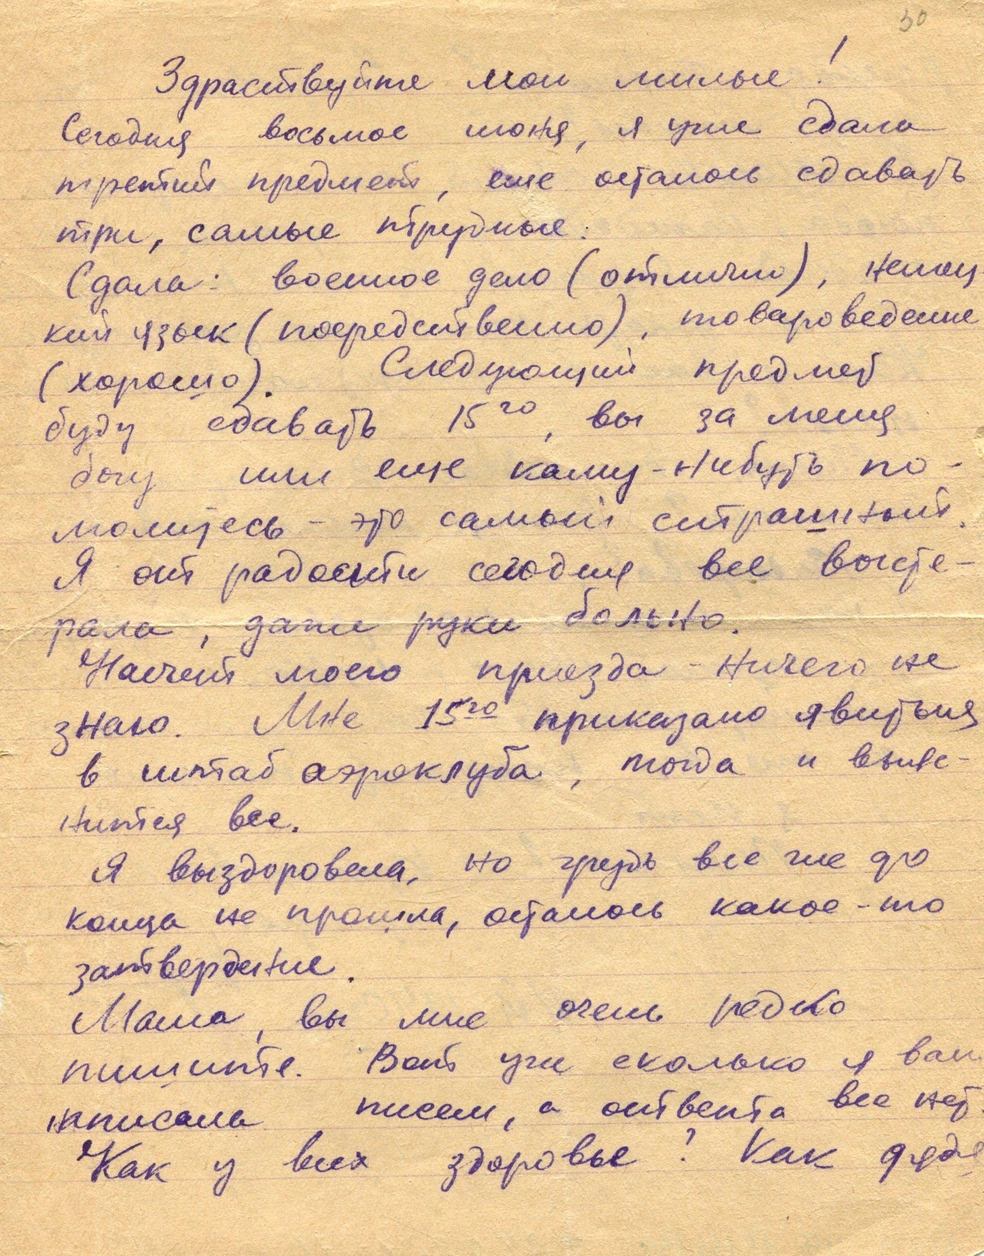 30
Здраствуйте мои милые!
Сегодня восьмое июня, я уже сдала
третий предмет, еще осталось сдавать
три, самые трудные.
Сдала: военное дело (отлично), немец
кий язык (посредственно), товароведение
(хорошо). Следующий предмет
буду сдавать 15го, вы за меня
богу или еще кому-нибудь по-
молитесь – это самый страшный.
Я от радости сегодня все высте-
рала, даже руки больно.
Насчет моего приезда – ничего не
знаю. Мне 15го приказано явиться
в штаб аэроклуба, тогда и выяс-
нится все.
Я выздоровела, но грудь все же до
конца не прошла, осталось какое-то
затвердение.
Мама, вы мне очень редко
пишите. Вот уже сколько я вам
написала писем, а ответа все нет.
Как у всех здоровье? Как дядя